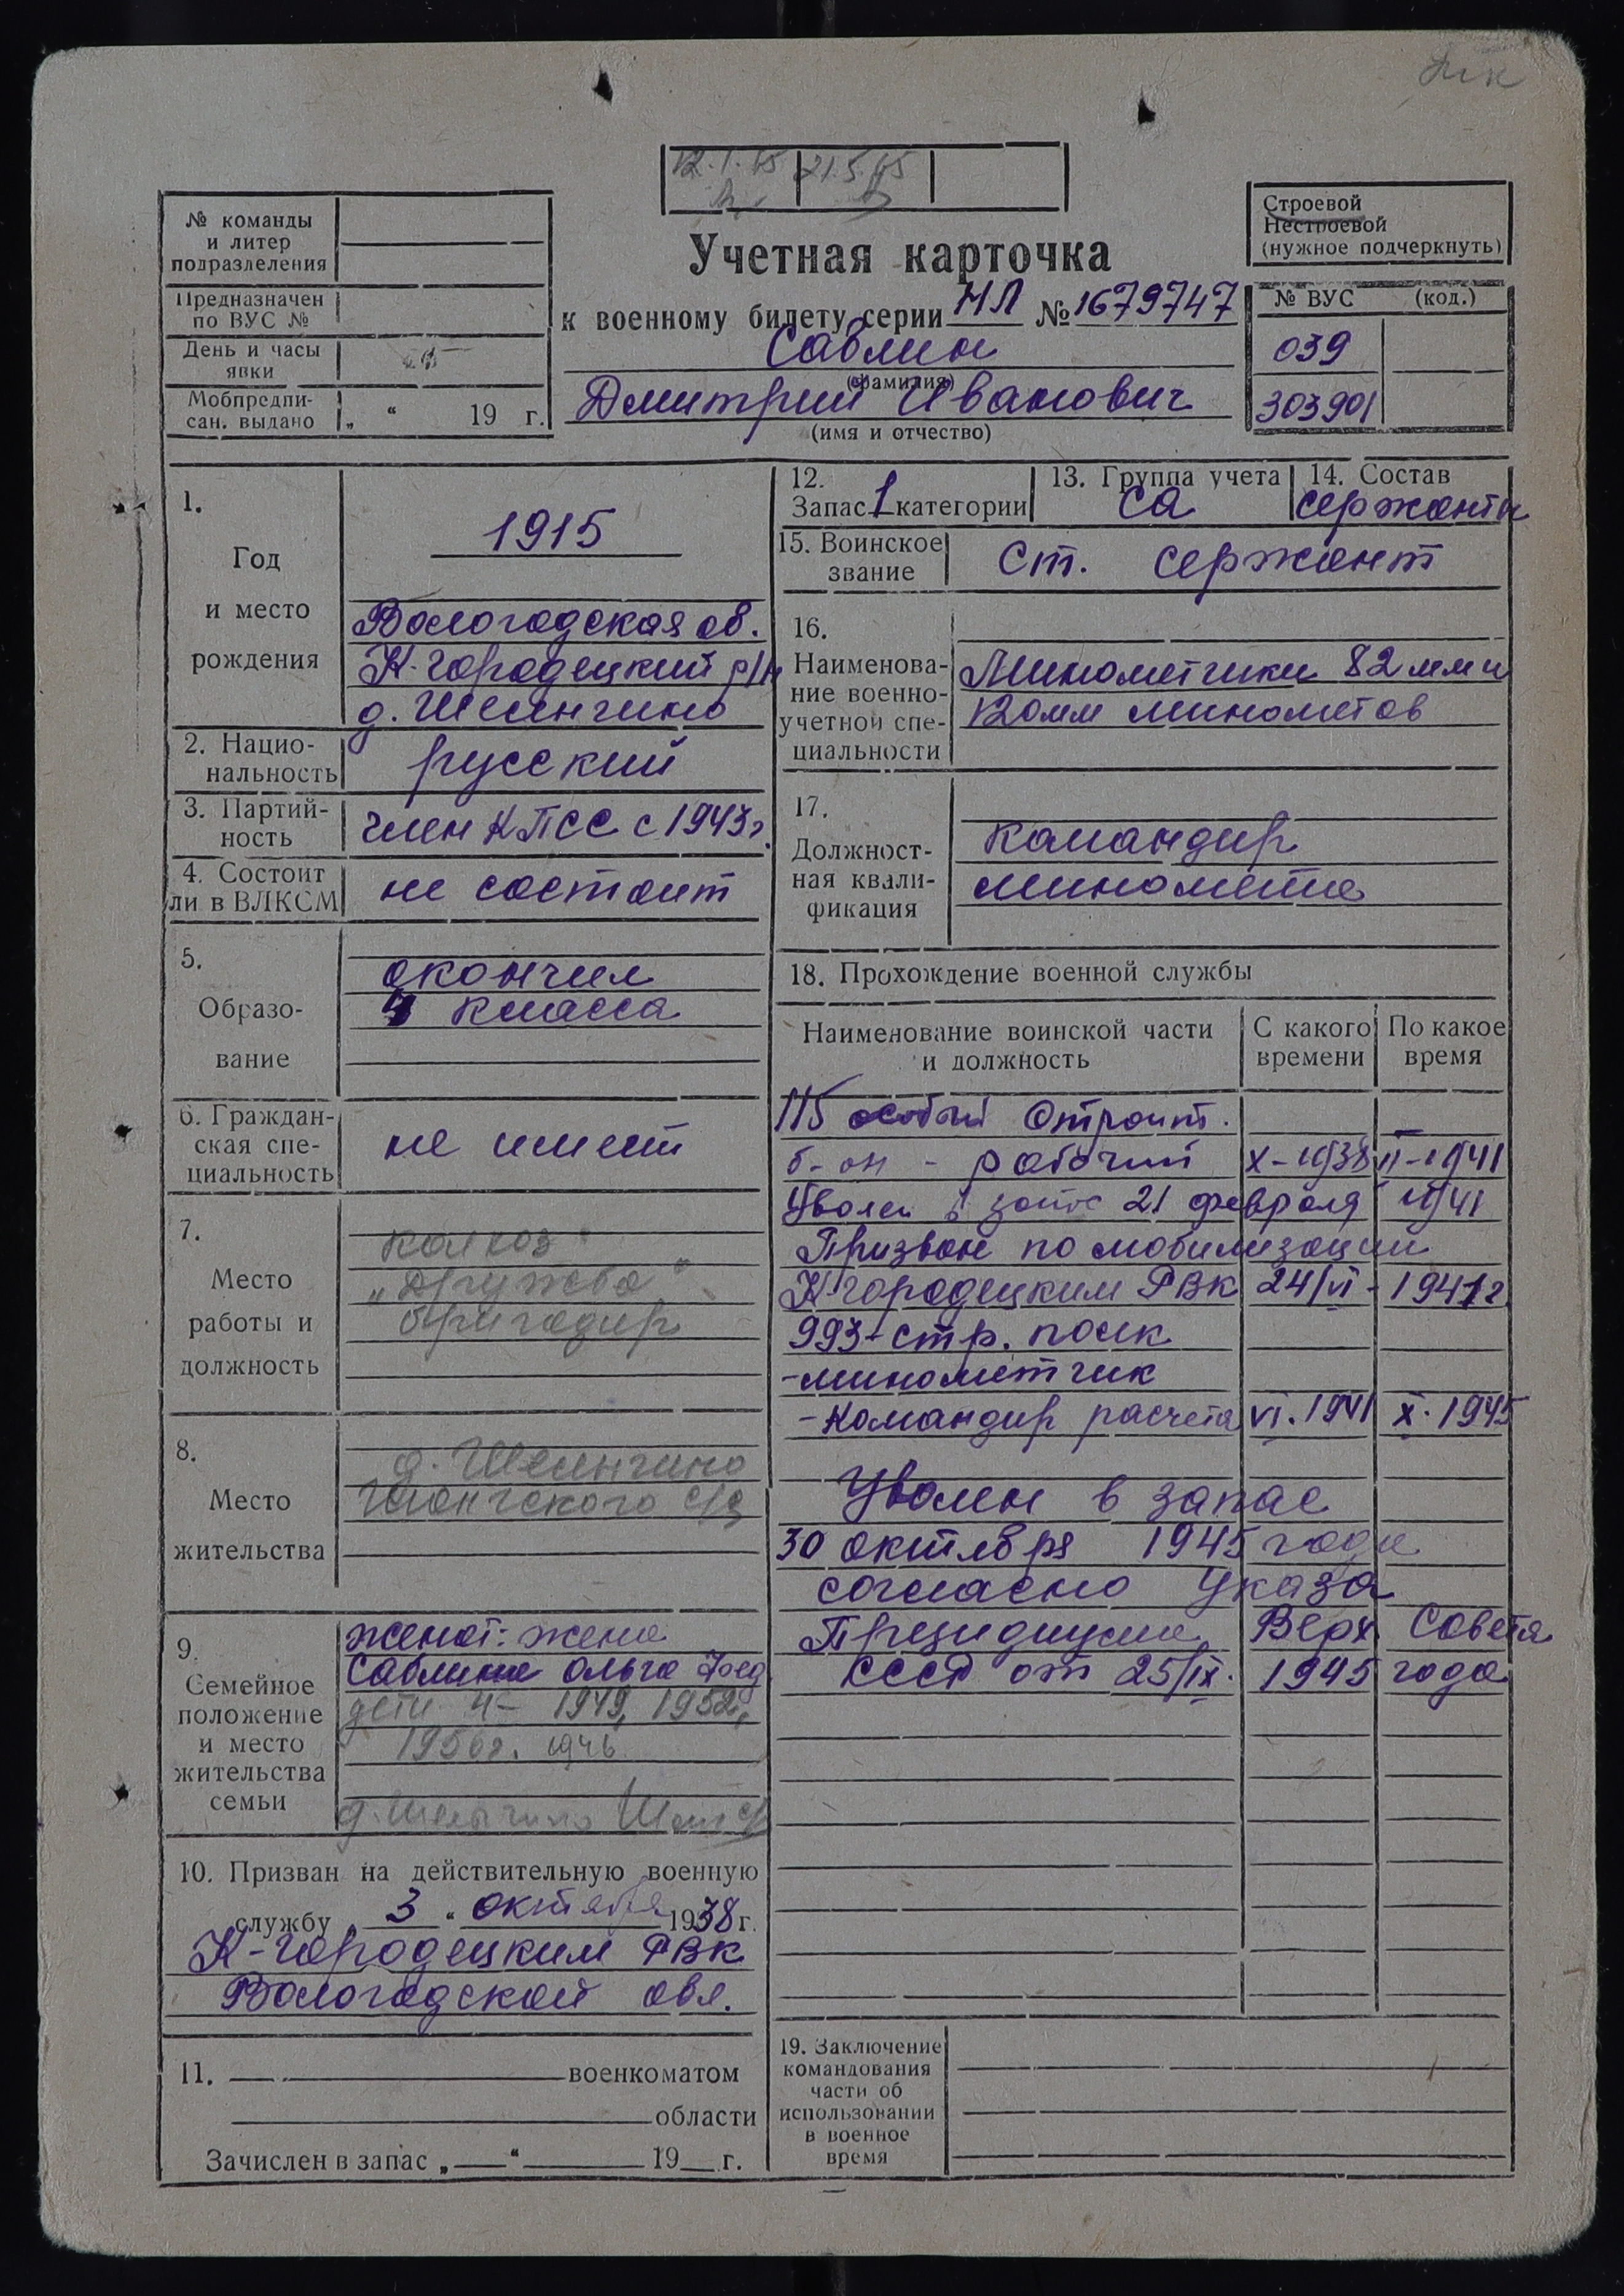 12.1.65 21.5.65
№ команды
и литер
подразделения
Предназначен
по ВУС №
День и часы
явки
Мобпредпи-
сан. выдано „ “ 19 г.
Учетная карточка
к военному билету серии НЛ № 1679747
Саблин
(фамилия)
Дмитрий Иванович
(имя и отчество)
Строевой
Нестроевой
(нужное подчеркнуть)
№ ВУС (код.)
039
303901
1.
Год
и место
рождения
1915
Вологодская об.
К-Городецкий р/н
д.
2. Нацио-
нальность
русский
3. Партий-
ность
член КПСС с 1943г.
4. Состоит
ли в ВЛКСМ
не состоит
5.
Образо-
вание
окончил
4 класса
6. Граждан-
ская спе-
циальность
не имеет
7.
Место
работы и
должность
колхоз
„Дружба“
бригадир
8.
Место
жительства
д.
с/с
9.
Семейное
положение
и место
жительства
семьи
женат: жена
Саблина Ольга Фед
дети 4- 1949, 1952,
1956г. 1946
д.
10. Призван на действительную военную
службу „ 3 “ октября 1938 г.
К-Городецким РВК
Вологодской обл.
11. военкоматом
области
Зачислен в запас „ “ 19 г.
12.
Запас 1 категории
13. Группа учета
СА
14. Состав
сержанты
15. Воинское
звание
Ст. сержант
16.
Наименова-
ние военно-
учетной спе-
циальности
Минометчики 82 мм и
120мм минометов
17.
Должност-
ная квали-
фикация
Командир
миномета
18. Прохождение военной службы
Наименование воинской части
и должность
С какого
времени
По какое
время
115 особый Строит.
б-он - рабочий X-1938 II-1941
Уволен в запас 21 февраля 1941
Призван по мобилизации
К-Городецким РВК 24/VI - 1941г
993-стр. полк
-минометчик
-Командир расчета VI.1941 X.1945
Уволен в запас
30 октября 1945 года
согласно Указа
Президиума Верх Совета
СССР от 25/IX. 1945 года
19. Заключение
командования
части об
использовании
в военное
время